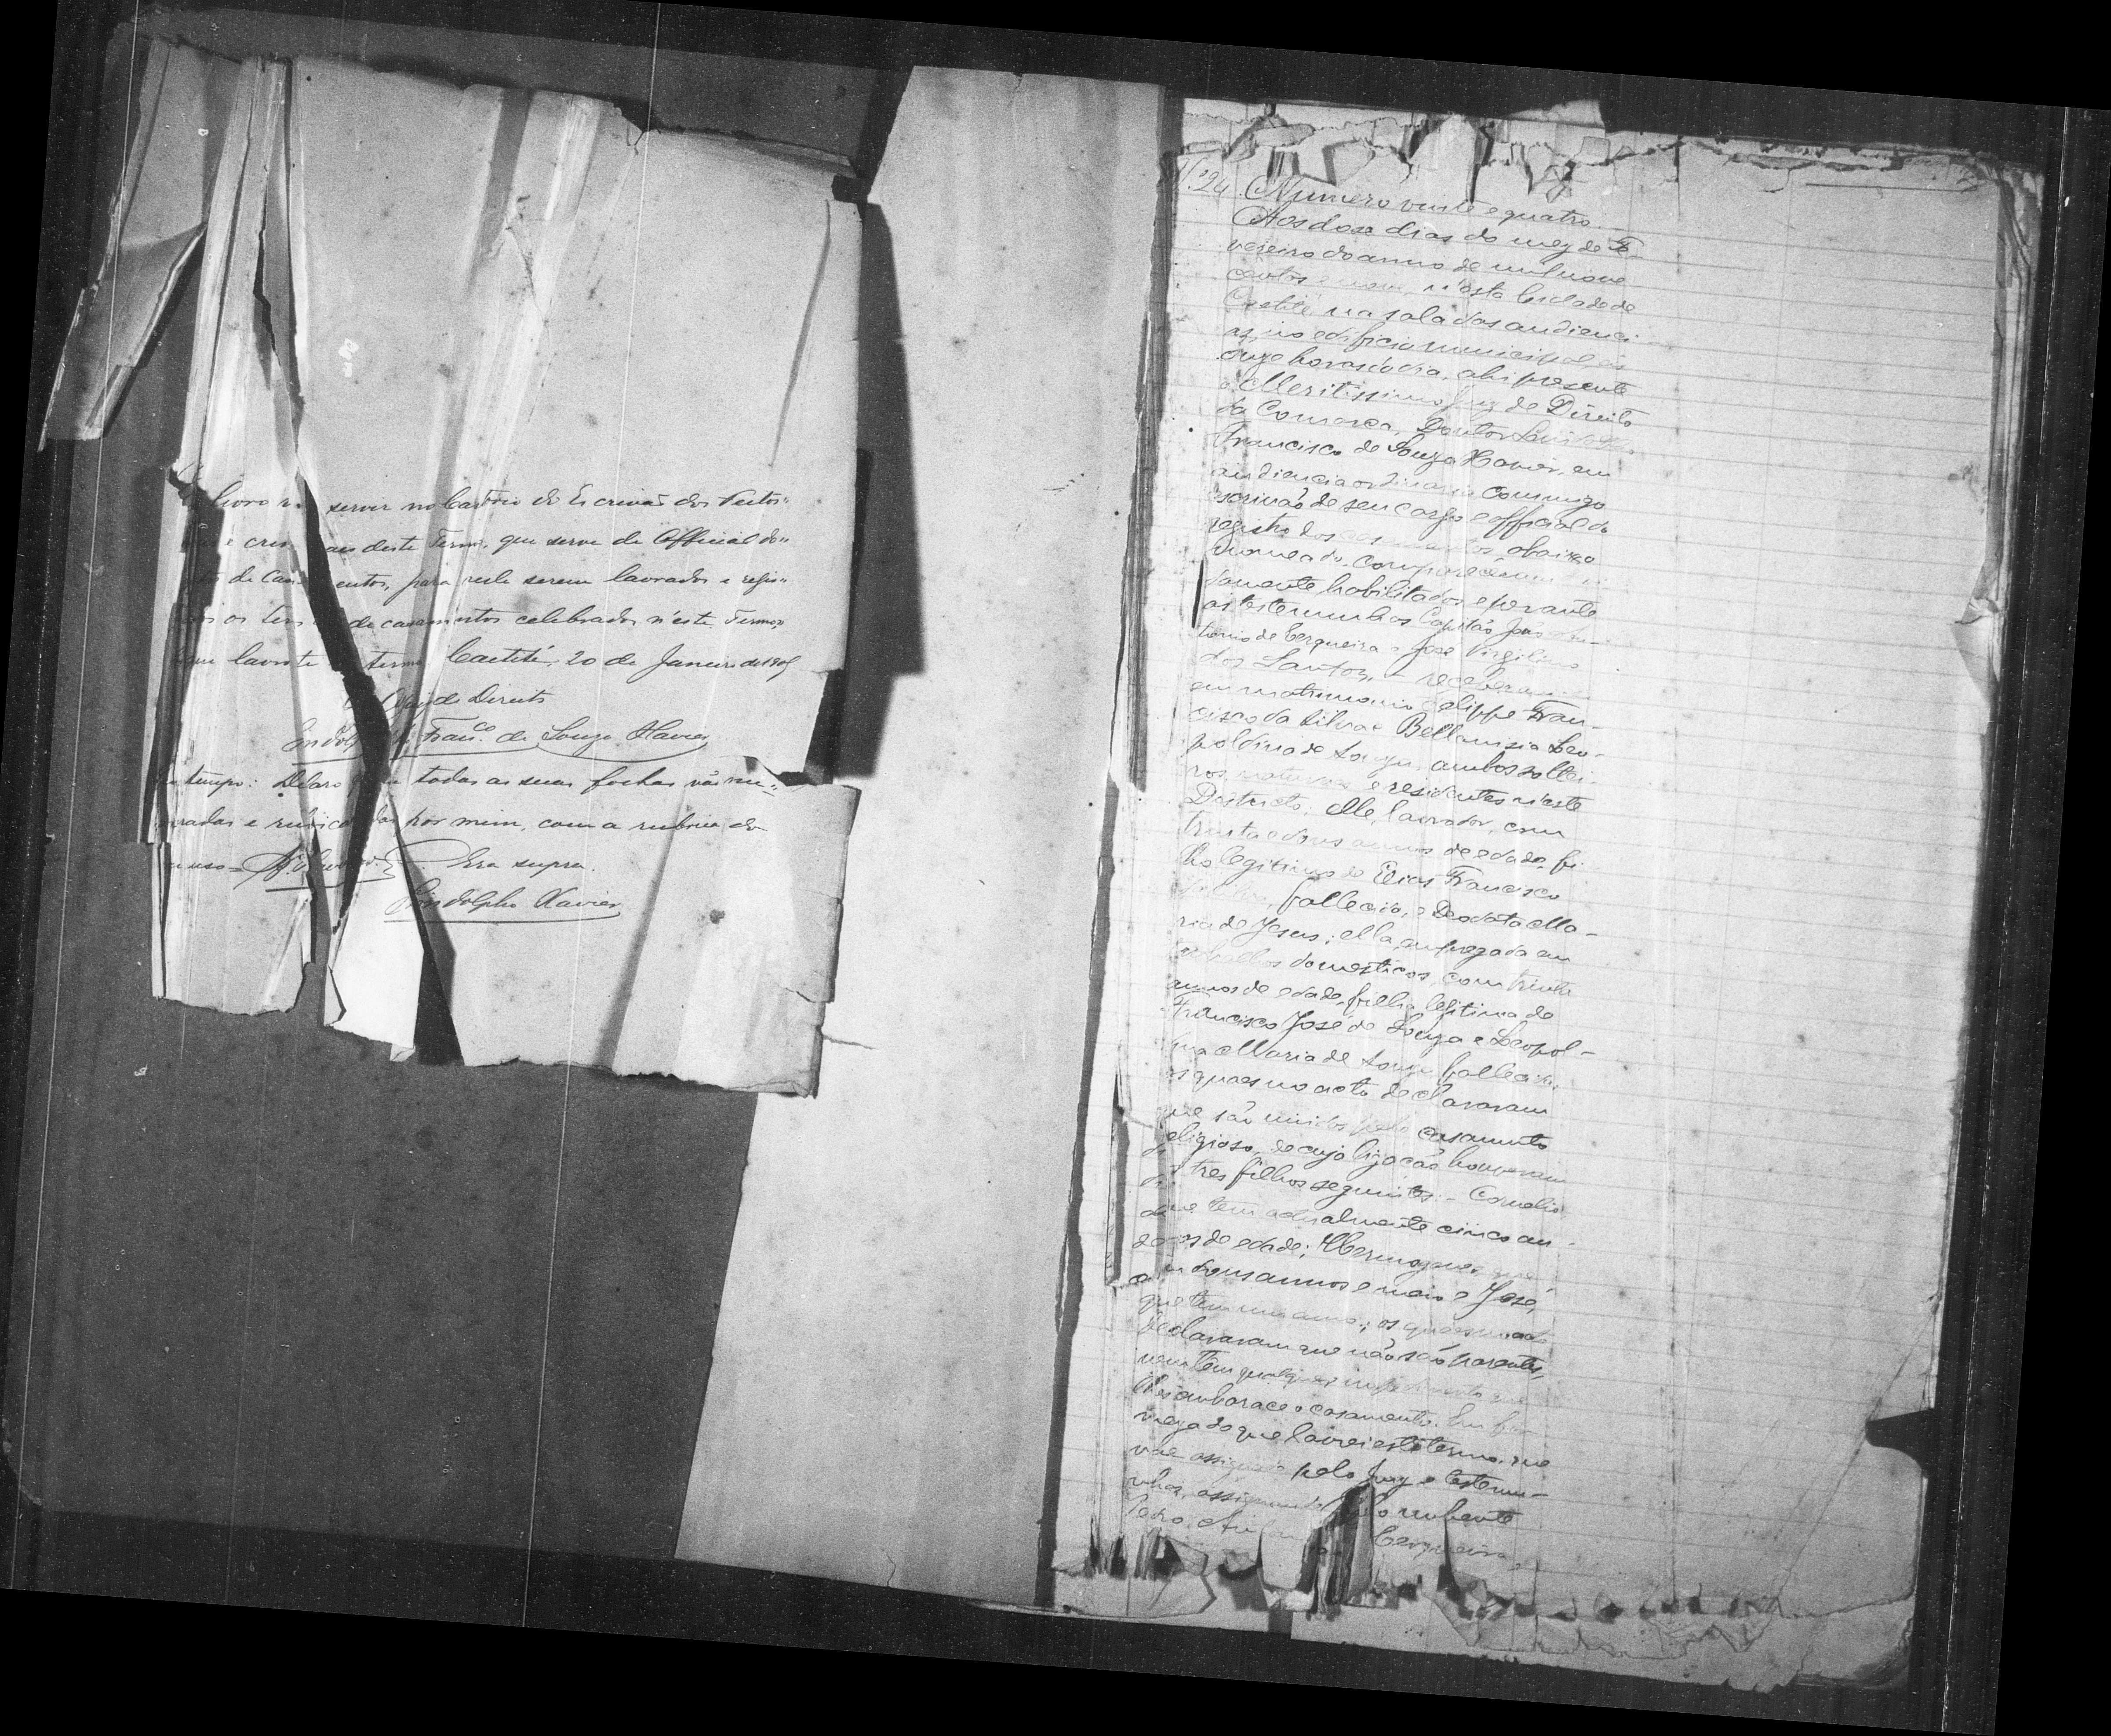 livro servir no Cartorio do Escrivaõ dos Feitos
e crim aes deste Termo, que serve de Official do
de Casamentos, para nelle serem lavrados e regis
os ter de casamentos celebrados n'este Termo,
lavrei termo. Caetité, 20 de Janeiro de 190
Juiz de Direito
Lindolpho Franco. de Souza Xavier
tempo: Declaro todas as suas folhas vão nu
radas e rubricadas por mim, com a rubrica do
uso = Era supra.
Lindolpho Xavier
N.º 24 Numero vinte e quatro.
Aos dose dias do mez de Fe
vereiro do anno de mil nove
centos e nove n'esta Cidade de
Caetité, na sala das audienci
as, no edificio municipal, ás
onze horas do dia, ahi presente
o Meritissimo Juiz de Direito
da Comarca, Doutor
Francisco de Souza Xavier, em
audiencia ordinaria commigo
escrivão de seu cargo e official do
registro dos casamentos abaixo
nomeado, compareceram
damente habilitados e perante
as testemunhas Capitão João An
tonio de Cerqueira e José Virgilino
dos Santos, receberam
em matrimonio Felippe Fran-
cisco da Silva e Bellanisia Leo-
poldina de Souza, ambos soltei
ros, naturaes e residentes n'este
Districto; elle, lavrador, com
trinta e dous annos de edade, fi
lho legitimo de Elias Francisco
da Silva, fallecido, e Deodata Ma-
ria de Jesus; ella, empregada em
trabalhos domesticos, com trinta
annos de edade, filha legitima de
Francisco José de Souza e Leopol-
ina Maria de Souza, fallecida,
os quaes no acto declararam
que são unidos pelo casamento
religioso, de cuja ligação houveram
os tres filhos seguintes: - Cornelio
que tem actualmente cinco an-
nos de edade; Hermogenes, que
tem dous annos e meio e José,
que tem um anno; os quaes
declararam que não são parentes,
nem tem qualquer impedimento que
lhes embarace o casamento. Em fir
meza do que lavrei este termo, que
vae assignado pelo Juiz e testemu-
nhas, assignando pelo nubente
Pedro Cerqueira,